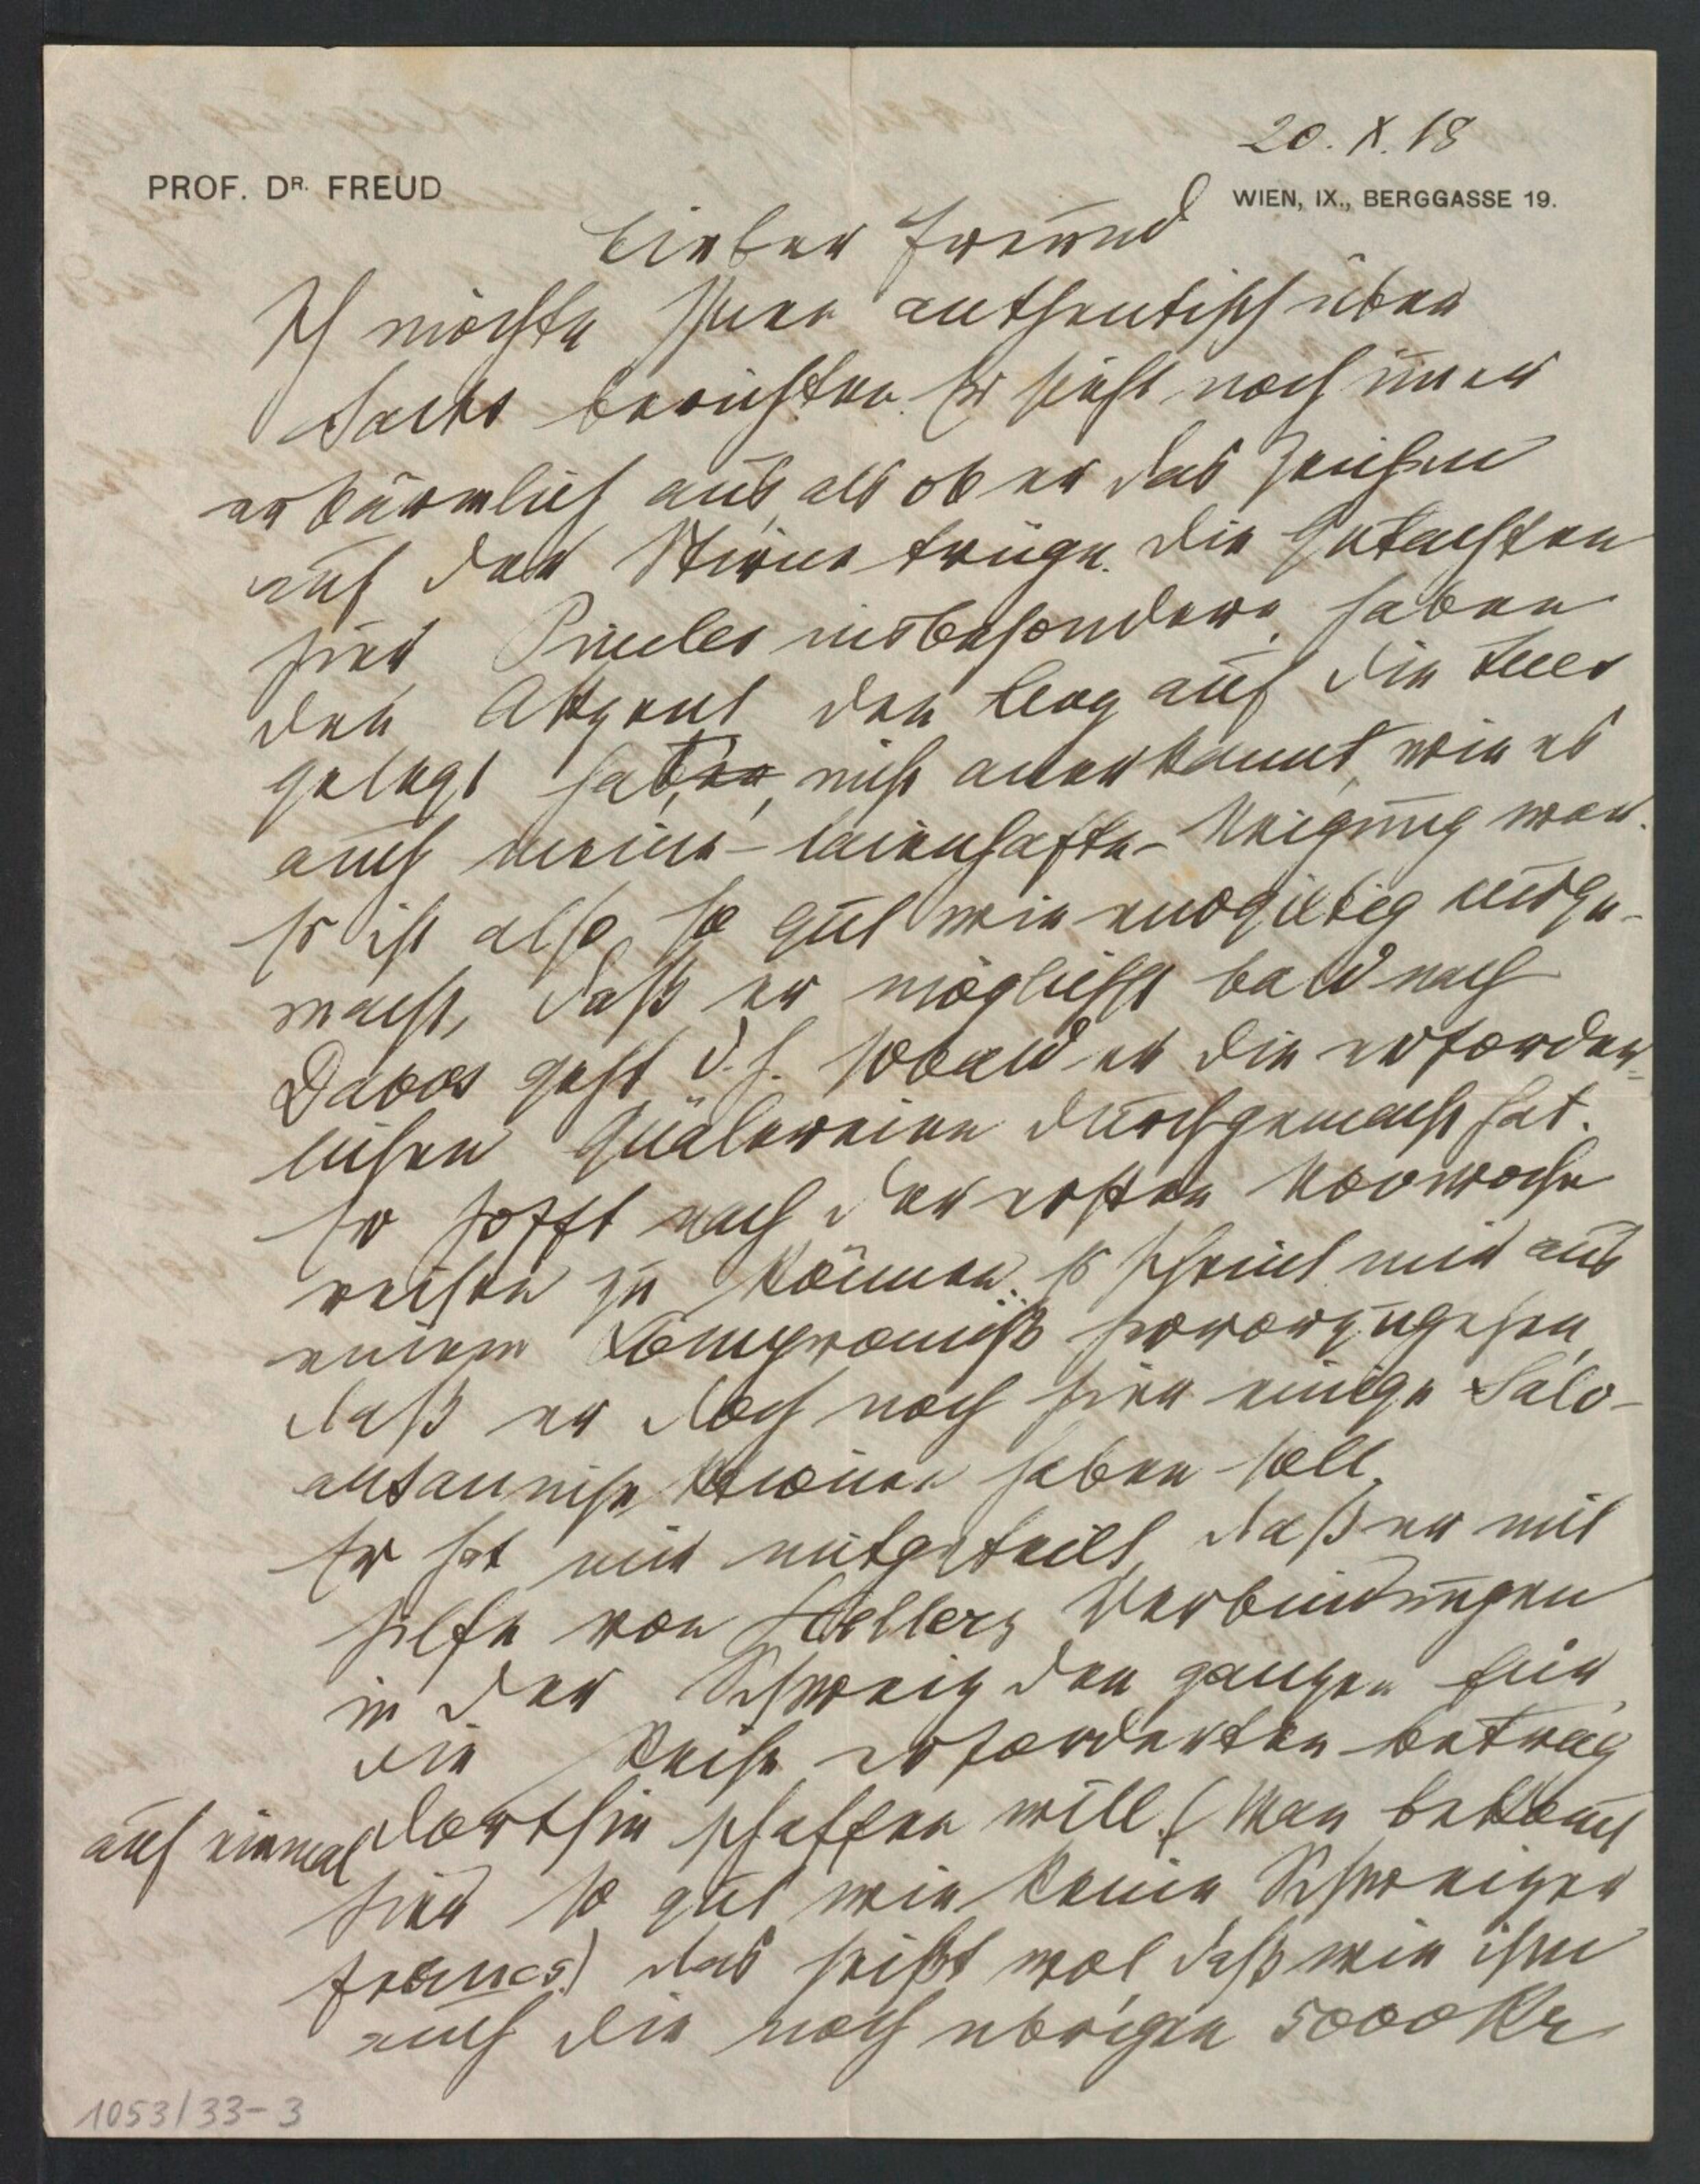 20. X. 18
PROF. DR. FREUD
WIEN, IX., BERGGASSE 19.
Lieber Freund
Ich möchte Ihnen authentisch über
Sachs berichten. Er sieht noch immer
erbärmlich aus, als ob er das Zeichen
auf der Stirne trüge. Die Gutachten
hier, Pineles insbesondere, haben
den Akzent, den Levy auf die
gelegt hat, nicht anerkannt, wie es
auch meine – laienhafte – Neigung war.
Es ist also so gut wie endgiltig ausge-
macht, daß er möglichst bald nach
Davos geht d.h. sobald er die erforder-
lichen Quälereien durchgemacht hat.
Er hofft nach der ersten Novwoche
reisen zu können. Es scheint mir aus
einem Kompromiß hervorzugehen,
daß er doch noch hier einige Salv-
arsan haben soll.
Er hat mir mitgeteilt, daß er mit
Hilfe von Hellers Verbindungen
in der Schweiz den ganzen für
die Reise erforderten Betrag
auf einmal dorthin schaffen will. (Man bekommt
hier so gut wie keine Schweizer
francs.) Das heißt wol, daß wir ihm
auch die noch übrigen 5000 Kr
1053/33-3